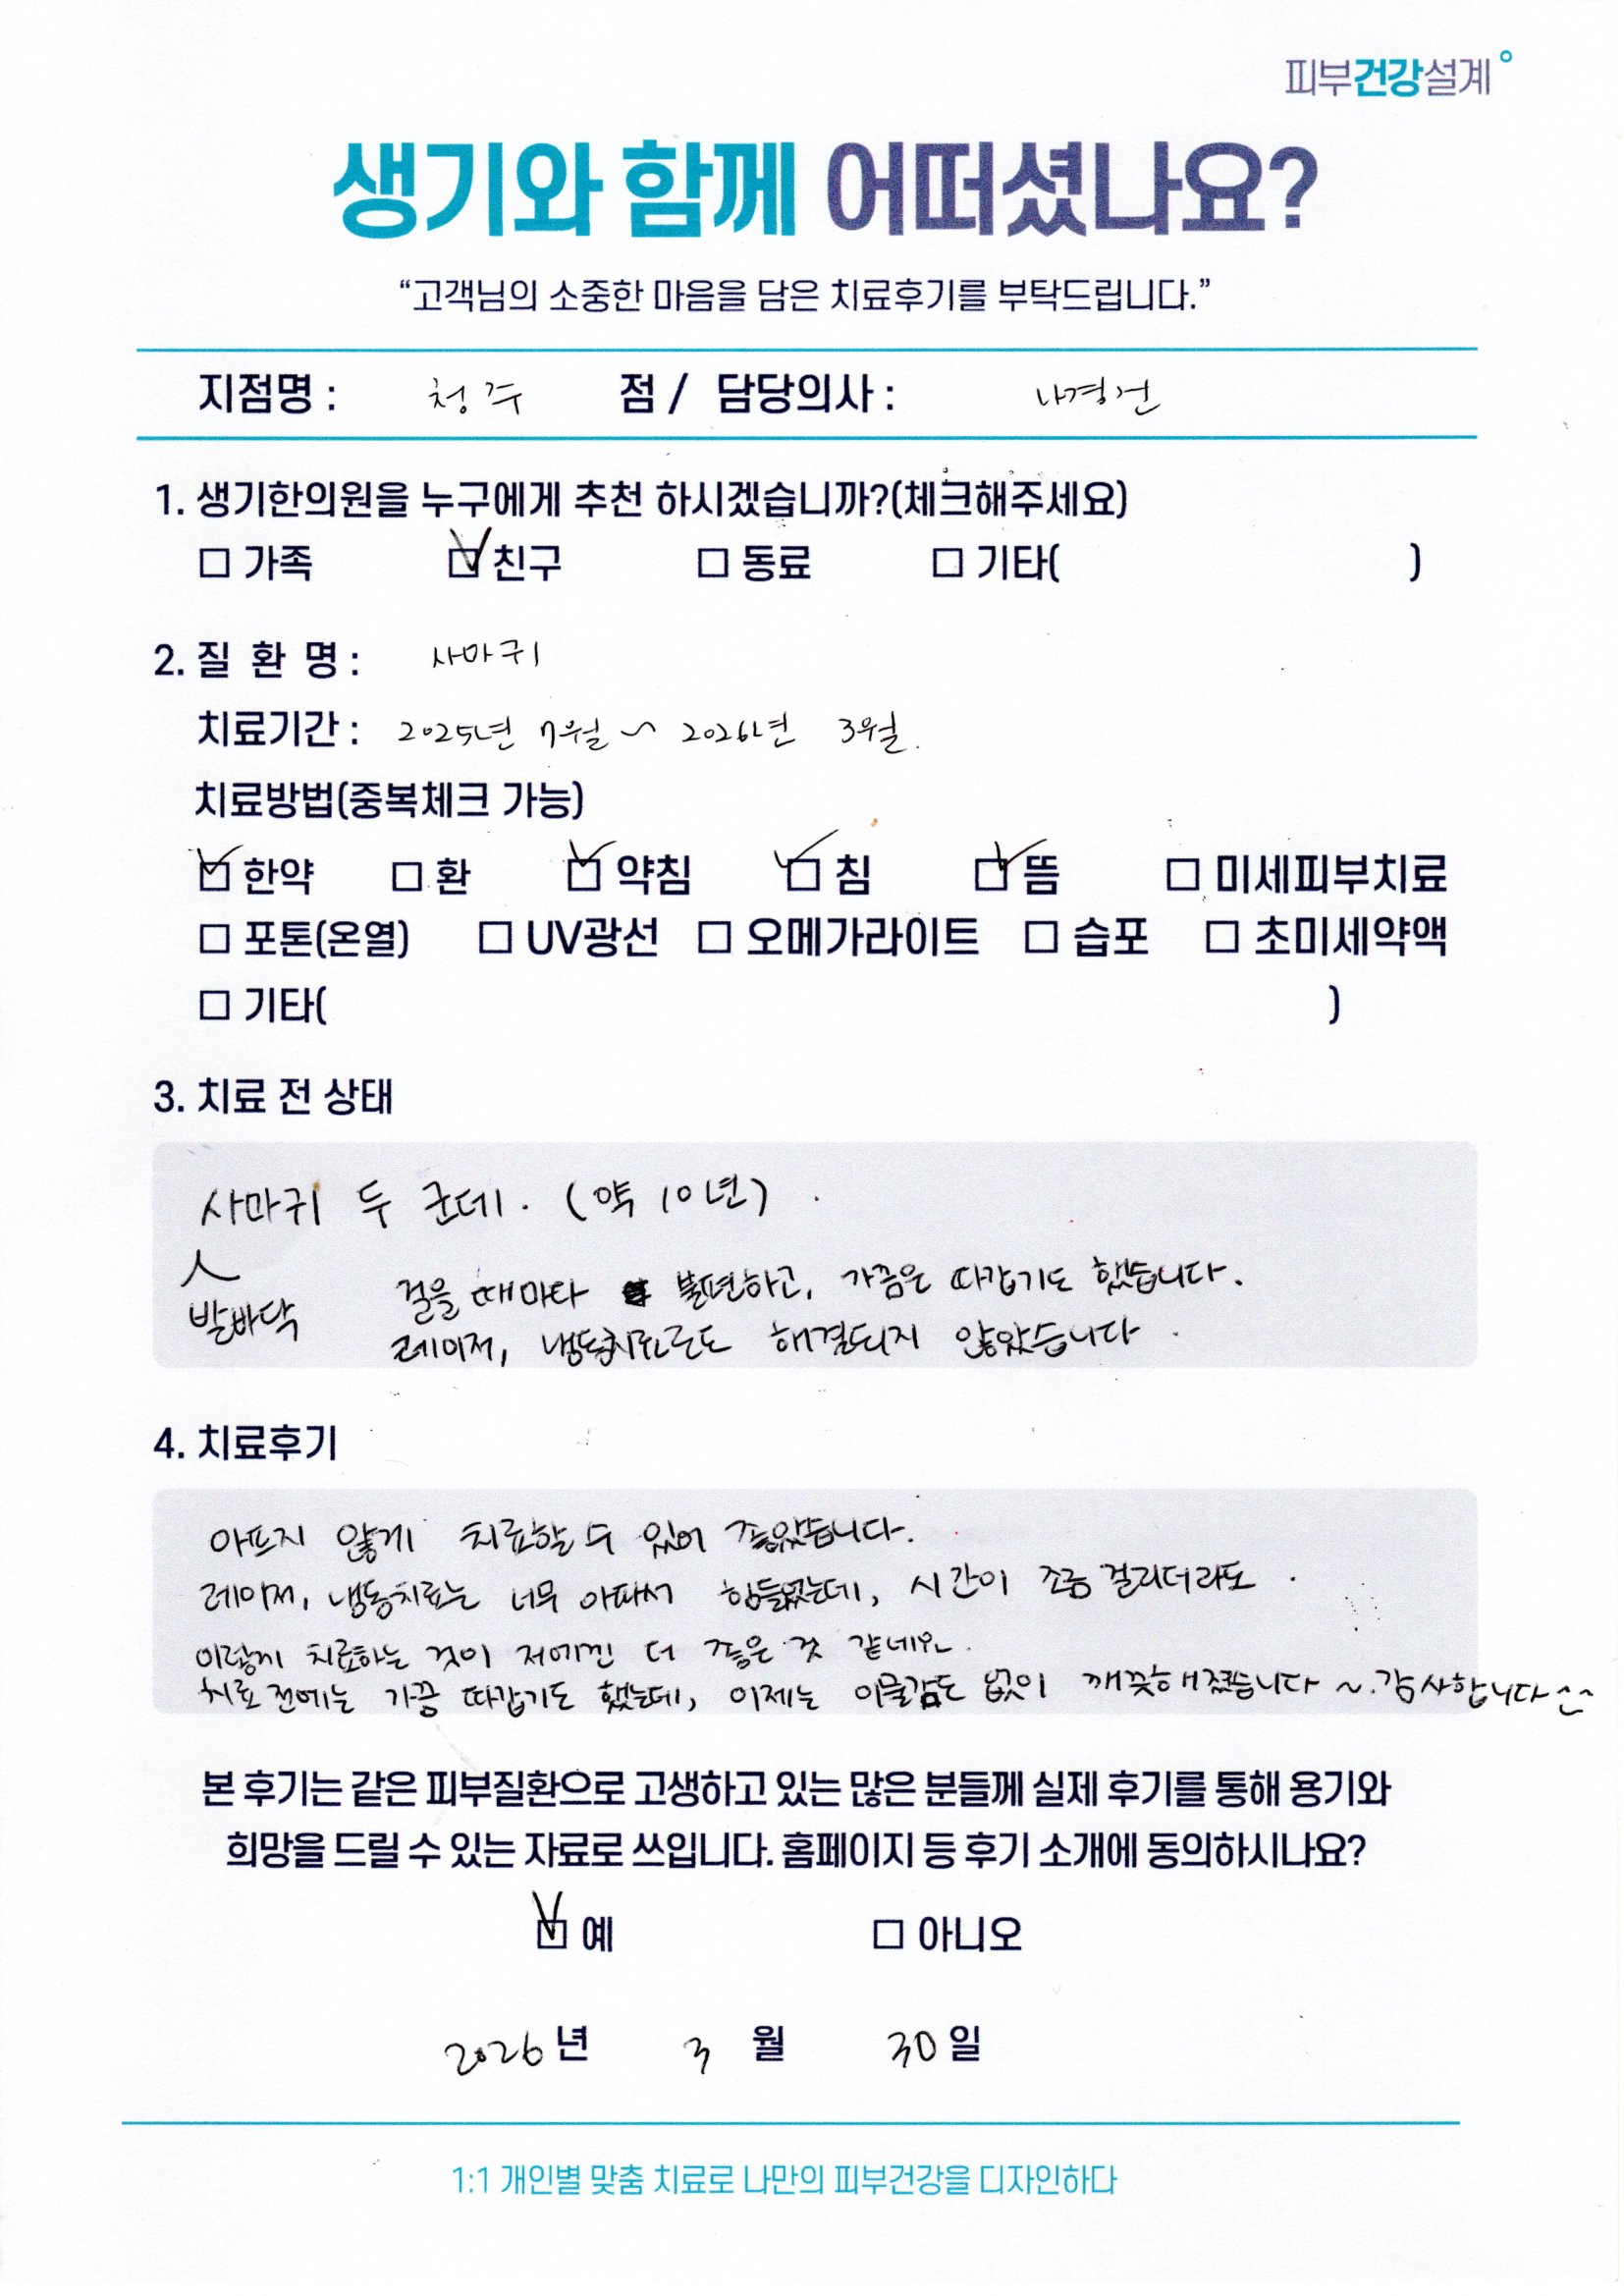 피부건강설계
생기와 함께 어떠셨나요?
“고객님의 소중한 마음을 담은 치료후기를 부탁드립니다.”
지점명 : 청주 점 / 담당의사 : 나경건
1. 생기한의원을 누구에게 추천 하시겠습니까?(체크해주세요)
☐ 가족 ☑ 친구 ☐ 동료 ☐ 기타( )
2. 질 환 명 : 사마귀
치료기간 : 2025년 7월 ~ 2026년 3월.
치료방법(중복체크 가능)
☑ 한약 ☐ 환 ☑ 약침 ☑ 침 ☑ 뜸 ☐ 미세피부치료
☐ 포톤(온열) ☐ UV광선 ☐ 오메가라이트 ☐ 습포 ☐ 초미세약액
☐ 기타( )
3. 치료 전 상태
사마귀 두 군데. (약 10년).
발바닥 걸을 때마다 불편하고, 가끔은 따갑기도 했습니다.
레이저, 냉동치료로도 해결되지 않았습니다.
4. 치료후기
아프지 않게 치료할 수 있어 좋았습니다.
레이저, 냉동치료는 너무 아파서 힘들었는데, 시간이 조금 걸리더라도.
이렇게 치료하는 것이 저에겐 더 좋은 것 같네요.
치료 전에는 가끔 따갑기도 했는데, 이제는 이물감도 없이 깨끗해졌습니다~. 감사합니다^^
본 후기는 같은 피부질환으로 고생하고 있는 많은 분들께 실제 후기를 통해 용기와
희망을 드릴 수 있는 자료로 쓰입니다. 홈페이지 등 후기 소개에 동의하시나요?
☑ 예 ☐ 아니오
2026년 3 월 30일
1:1 개인별 맞춤 치료로 나만의 피부건강을 디자인하다